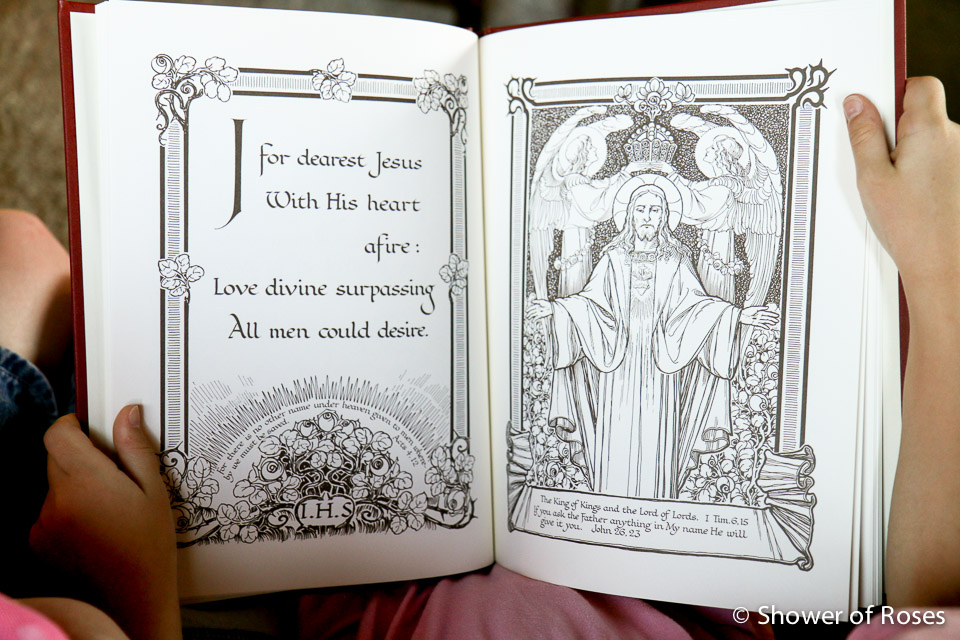 J for dearest Jesus
With His heart
afire:
Love divine surpassing
All men could desire.
for there is no other name under heaven given to men where
by we must be saved. Acts 4,12
I.H.S
The King of Kings and the Lord of Lords. I Tim. 6,15
If you ask the Father anything in My name He will
give it you. John 26,23
© Shower of Roses